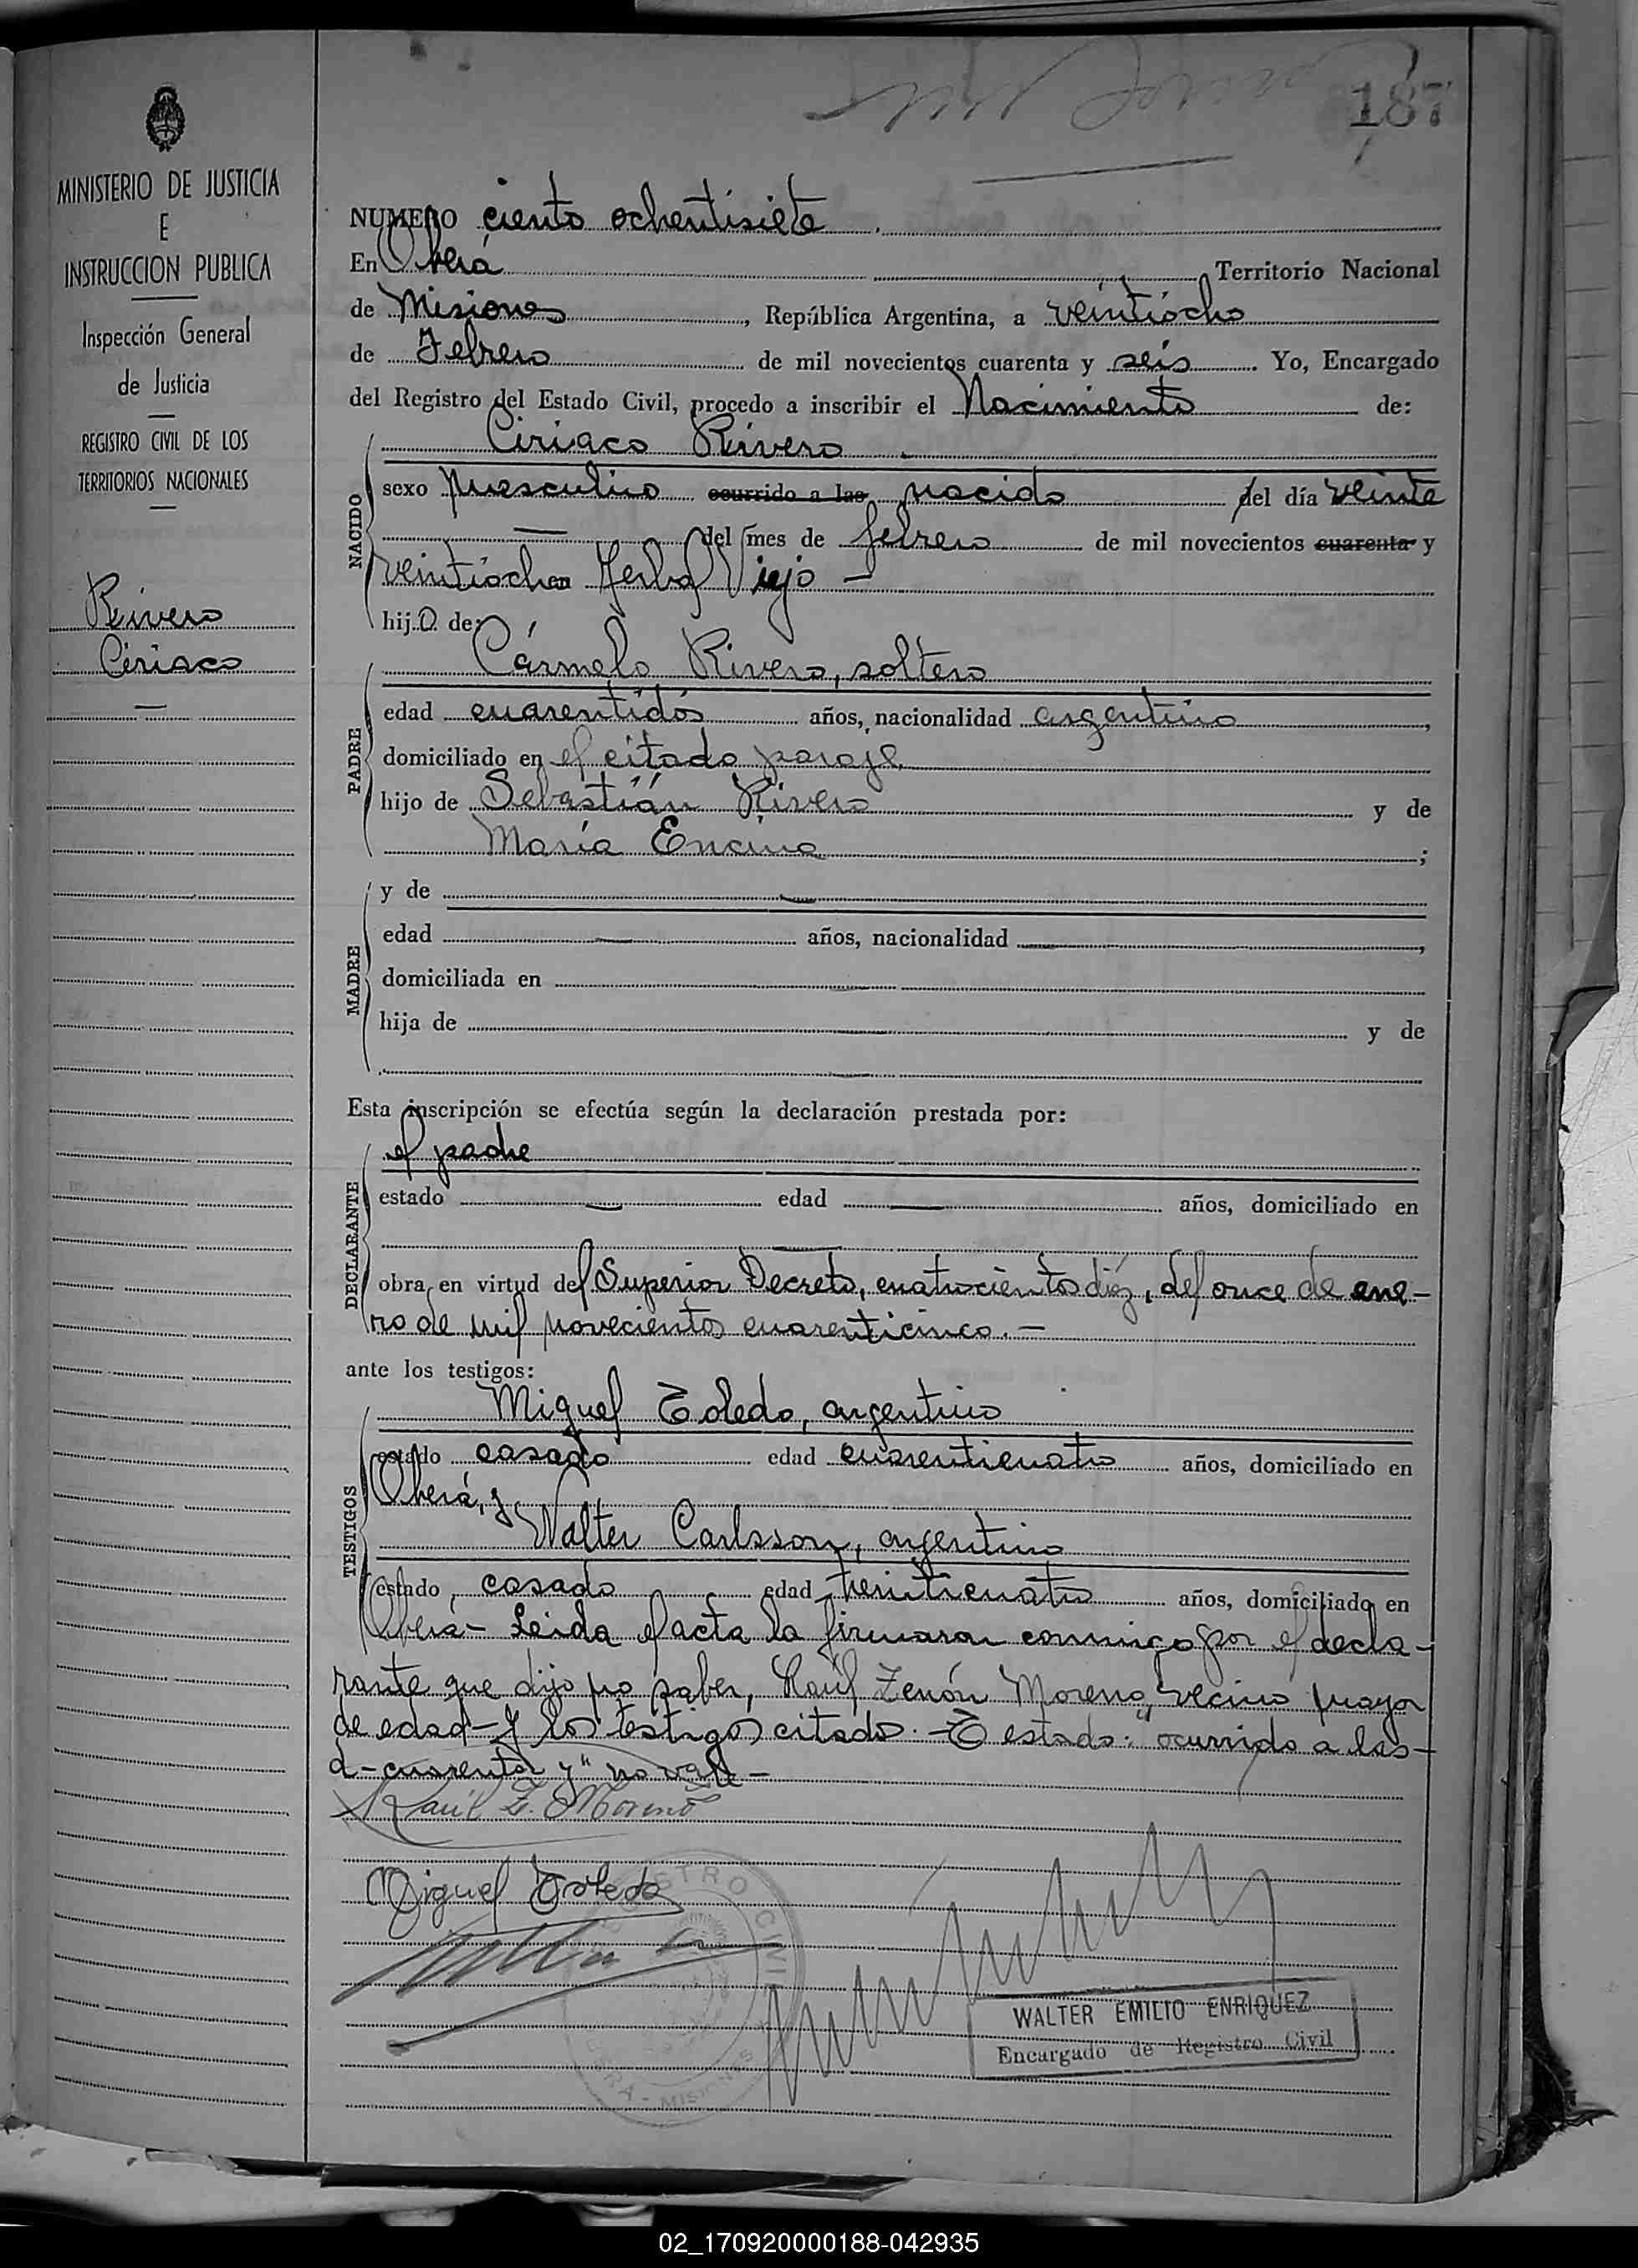 187
MINISTERIO DE JUSTICIA
E
INSTRUCCION PUBLICA
Inspección General
de Justicia
REGISTRO CIVIL DE LOS
TERRITORIOS NACIONALES
Rivero
Ciriaco
NUMERO ciento ochentisiete
En Oberá Territorio Nacional
de Misiones, República Argentina, a veintiocho
de Febrero de mil novecientos cuarenta y seis. Yo, Encargado
del Registro del Estado Civil, procedo a inscribir el Nacimiento de:
NACIDO
Ciriaco Rivero
sexo masculino ocurrido a las nacido del día veinte
— del mes de febrero de mil novecientos cuarenta y
veintiocho en Yerbal Viejo —
hijo de:
PADRE
Cármelo Rivero, soltero
edad cuarentidós años, nacionalidad argentino,
domiciliado en el citado paraje
hijo de Sebastián Rivero y de
María Encina;
MADRE
y de —
edad — años, nacionalidad —,
domiciliada en —
hija de — y de
—
Esta inscripción se efectúa según la declaración prestada por:
DECLARANTE
el padre
estado — edad — años, domiciliado en
—
obra en virtud del Superior Decreto, cuatrocientos diéz, del once de ene-
ro de mil novecientos cuarenticinco. —
ante los testigos:
TESTIGOS
Miguel Toledo, argentino
estado casado edad cuarenticuatro años, domiciliado en
Oberá, y
Walter Carlsson, argentino
estado casado edad treinticuatro años, domiciliado en
Oberá - Leida el acta la firmaron conmigo por el decla-
rante que dijo no saber, Raúl Zenón Moreno, vecino mayor
de edad - y los testigos citados. - T estado: "ocurrido a las -
d - cuarenta y" no vale -
Raúl Z. Moreno
Miguel Toledo
REGISTRO CIVIL
OBERA - MISIONES
WALTER EMILIO ENRIQUEZ
Encargado de Registro Civil
02_170920000188-042935